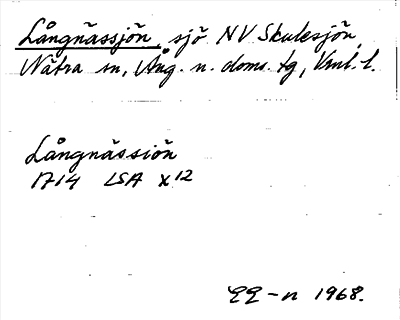 Långnässjön, sjö NV Skulesjön,
Nätra sn, Ång. n. doms. tg, Vnl. l.
Långnässiön
1714 LSA X12
EE-n 1968.